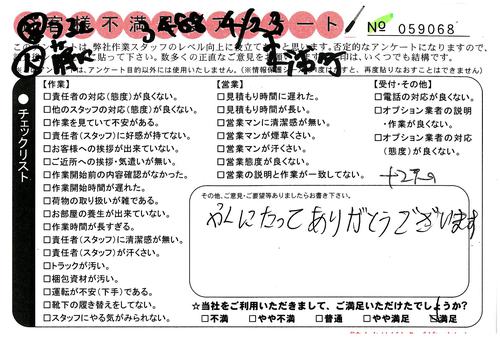 お客様不満足アンケート
4/23
No 059068
このアンケートは、弊社作業スタッフのレベル向上に役立てようと思います。否定的なアンケートになりますので、
チェックリスト
【作業】
□責任者の対応(態度)が良くない。
□他のスタッフの対応(態度)が良くない。
□作業を見ていて不安がある。
□責任者(スタッフ)に好感が持てない。
□お客様への挨拶が出来ていない。
□ご近所への挨拶・気遣いが無い。
□作業開始前の内容確認がなかった。
□作業開始時間が遅れた。
□荷物の取り扱いが雑である。
□お部屋の養生が出来ていない。
□作業時間が長すぎる。
□責任者(スタッフ)に清潔感が無い。
□責任者(スタッフ)が汗くさい。
□トラックが汚い。
□梱包資材が汚い。
□運転が不安(下手)である。
□靴下の履き替えをしてない。
□スタッフにやる気がみられない。
【営業】
□見積もり時間に遅れた。
□見積もり時間が長い。
□営業マンに清潔感が無い。
□営業マンが煙草くさい。
□営業マンが汗くさい。
□営業態度が良くない。
□営業の説明と作業が一致してない。
【受付・その他】
□電話の対応が良くない。
□オプション業者の説明
・作業が良くない。
□オプション業者の対応
(態度)が良くない。
その他、ご意見・ご要望等ありましたらお書き下さい。
やくにたって ありがとうございます
☆当社をご利用いただきまして、ご満足いただけたでしょうか?
□不満 □やや不満 □普通 □やや満足 ☑満足